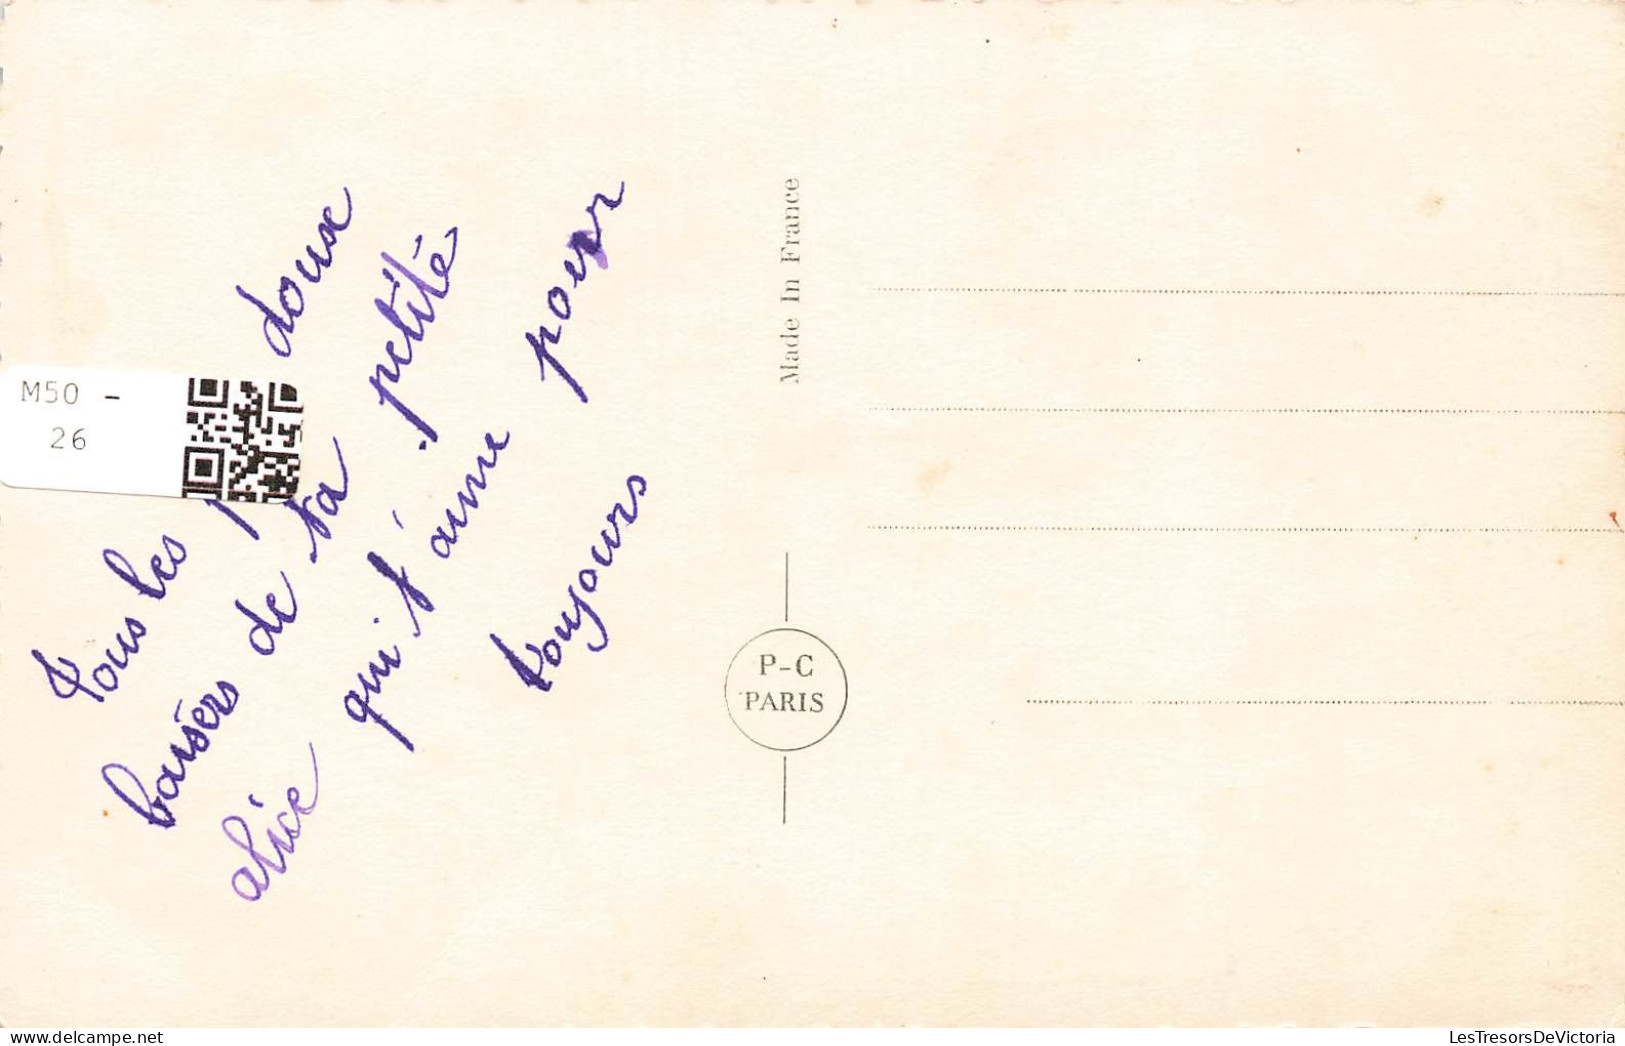 Tous les doux
baisérs de ta petité
alice qui t'aime pour
toujours
Made In France
P-C
PARIS
M50 -
26
www.delcampe.net
LesTresorsDeVictoria